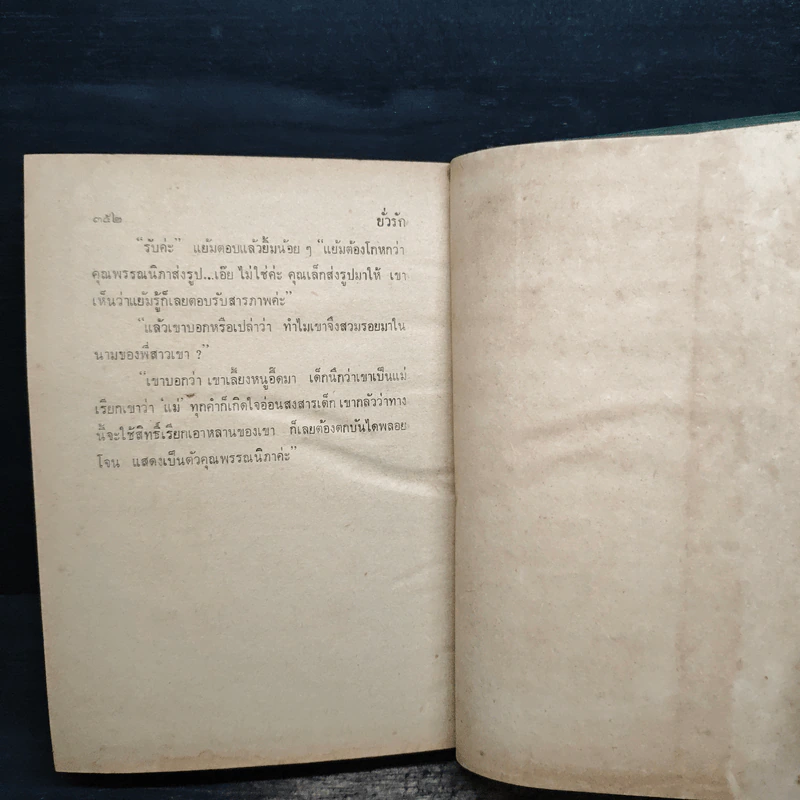 ๓๕๒
ชั่วรัก
“รับค่ะ” แย้มตอบแล้วยิ้มน้อย ๆ “แย้มต้องโกหกว่า
คุณพรรณนิภาส่งรูป...เอ๊ย ไม่ใช่ค่ะ คุณเล็กส่งรูปมาให้ เขา
เห็นว่าแย้มรู้ก็เลยตอบรับสารภาพค่ะ”
“แล้วเขาบอกหรือเปล่าว่า ทำไมเขาจึงสวมรอยมาใน
นามของพี่สาวเขา ?”
“เขาบอกว่า เขาเลี้ยงหนูอี๊ดมา เด็กนึกว่าเขาเป็นแม่
เรียกเขาว่า ‘แม่’ ทุกคำก็เกิดใจอ่อนสงสารเด็ก เขากลัวว่าทาง
นี้จะใช้สิทธิ์เรียกเอาหลานของเขา ก็เลยต้องตกบันไดพลอย
โจน แสดงเป็นตัวคุณพรรณนิภาค่ะ”